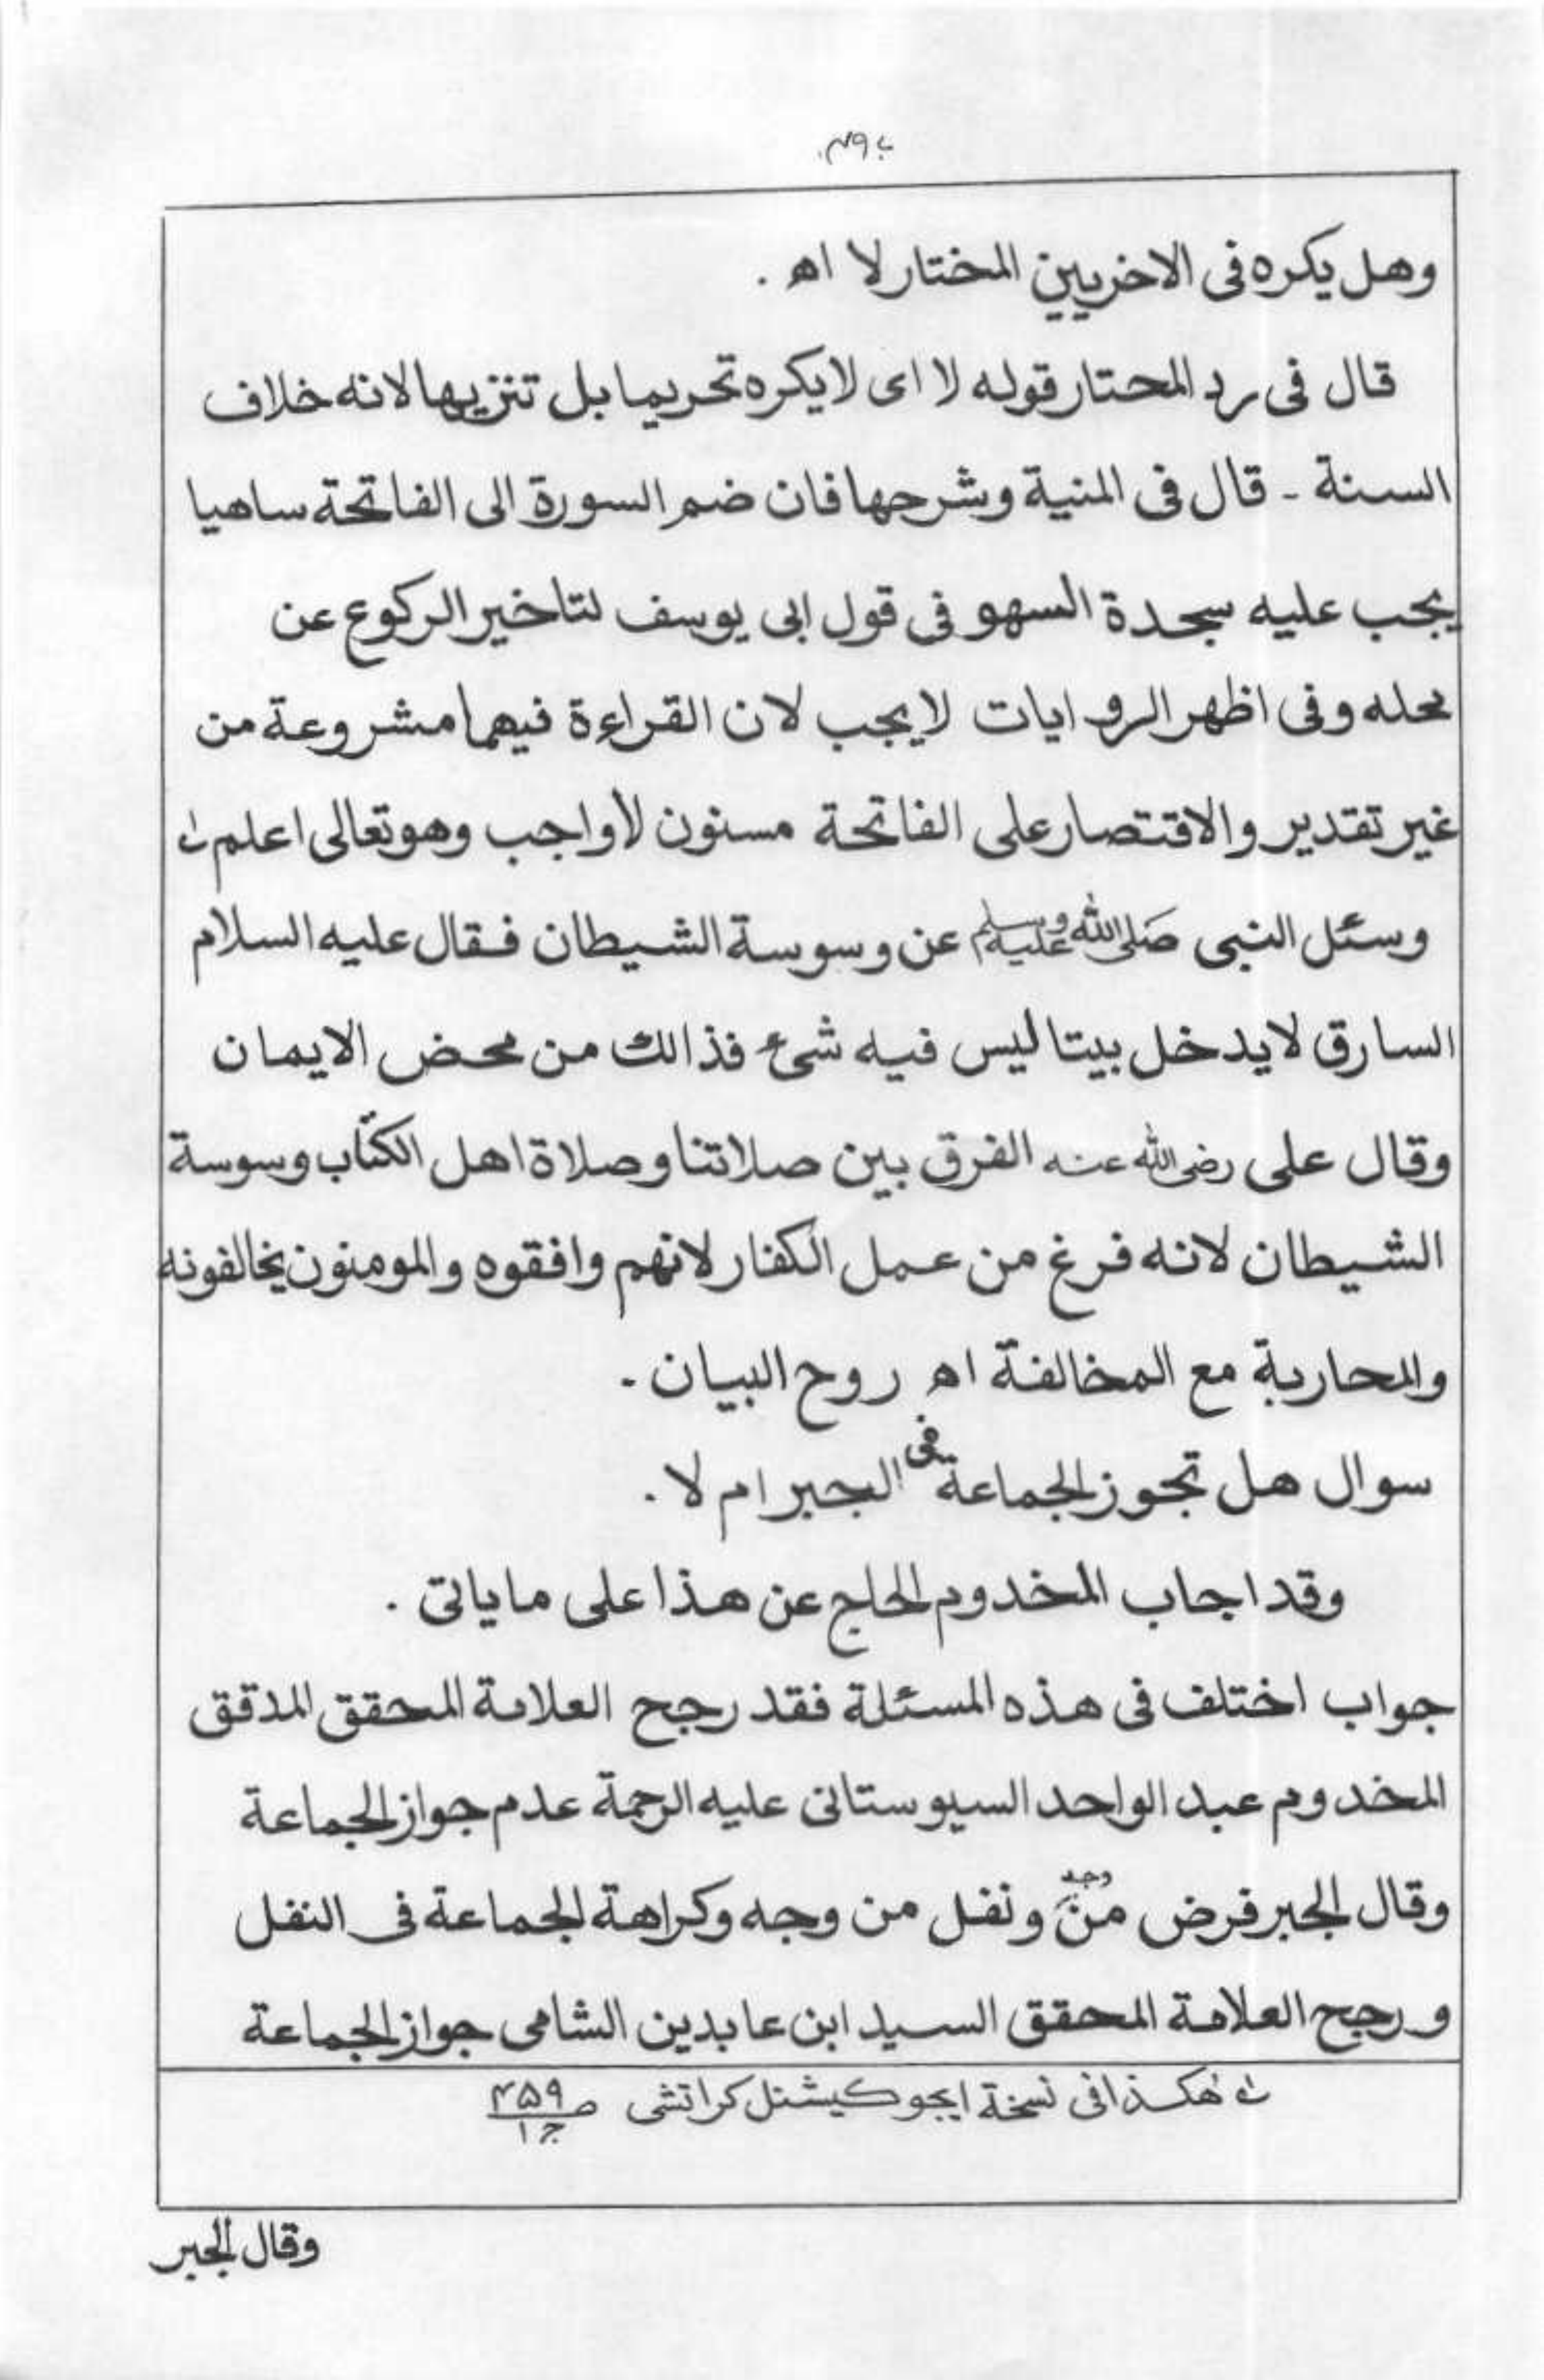 وهل يكره فى الاخريين المختار لا اه .
قال فى رد المحتار قوله لا اى لا يكره تحريما بل تنزيها لانه خلاف
السنة - قال فى المنية وشرحها فان ضم السورة الى الفاتحة ساهيا
يجب عليه سجدة السهو فى قول ابى يوسف لتاخير الركوع عن
محله وفى اظهر الروايات لا يجب لان القراءة فيهما مشروعة من
غير تقدير والاقتصار على الفاتحة مسنون لا واجب وهو تعالى اعلم
وسئل النبى صلى الله عليه وسلم عن وسوسة الشيطان فقال عليه السلام
السارق لا يدخل بيتا ليس فيه شىء فذالك من محض الايمان
وقال على رضى الله عنه الفرق بين صلاتنا وصلاة اهل الكتاب وسوسة
الشيطان لانه فرغ من عمل الكفار لانهم وافقوه والمومنون يخالفونه
والمحاربة مع المخالفة اه روح البيان -
سوال هل تجوز الجماعة فى الجبر ام لا .
وقد اجاب المخدوم الحاج عن هذا على ماياتى .
جواب اختلف فى هذه المسئلة فقد رجح العلامة المحقق المدقق
المخدوم عبد الواحد السيوستانى عليه الرحمة عدم جواز الجماعة
وقال الجبر فرض من وجه ونفل من وجه وكراهة الجماعة فى النفل
ورجح العلامة المحقق السيد ابن عابدين الشامى جواز الجماعة
هكذا فى نسخة ايجوكيشنل كراتشى ص ۴۵۹ ج ۱
وقال الجبر